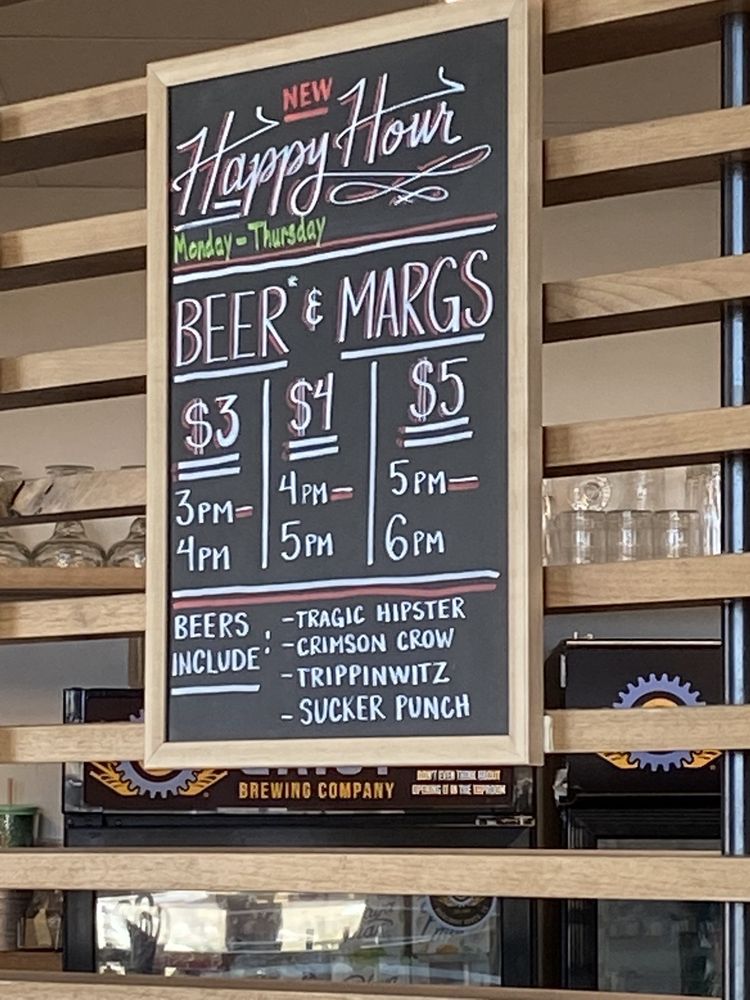 NEW
Happy Hour
Monday - Thursday
BEER* & MARGS
$3
3PM-
4PM
$4
4PM-
5PM
$5
5PM-
6PM
BEERS INCLUDE:
- TRAGIC HIPSTER
- CRIMSON CROW
- TRIPPINWITZ
- SUCKER PUNCH
BREWING COMPANY
DON'T EVEN THINK ABOUT
OPENING IT IN THE TAPROOM